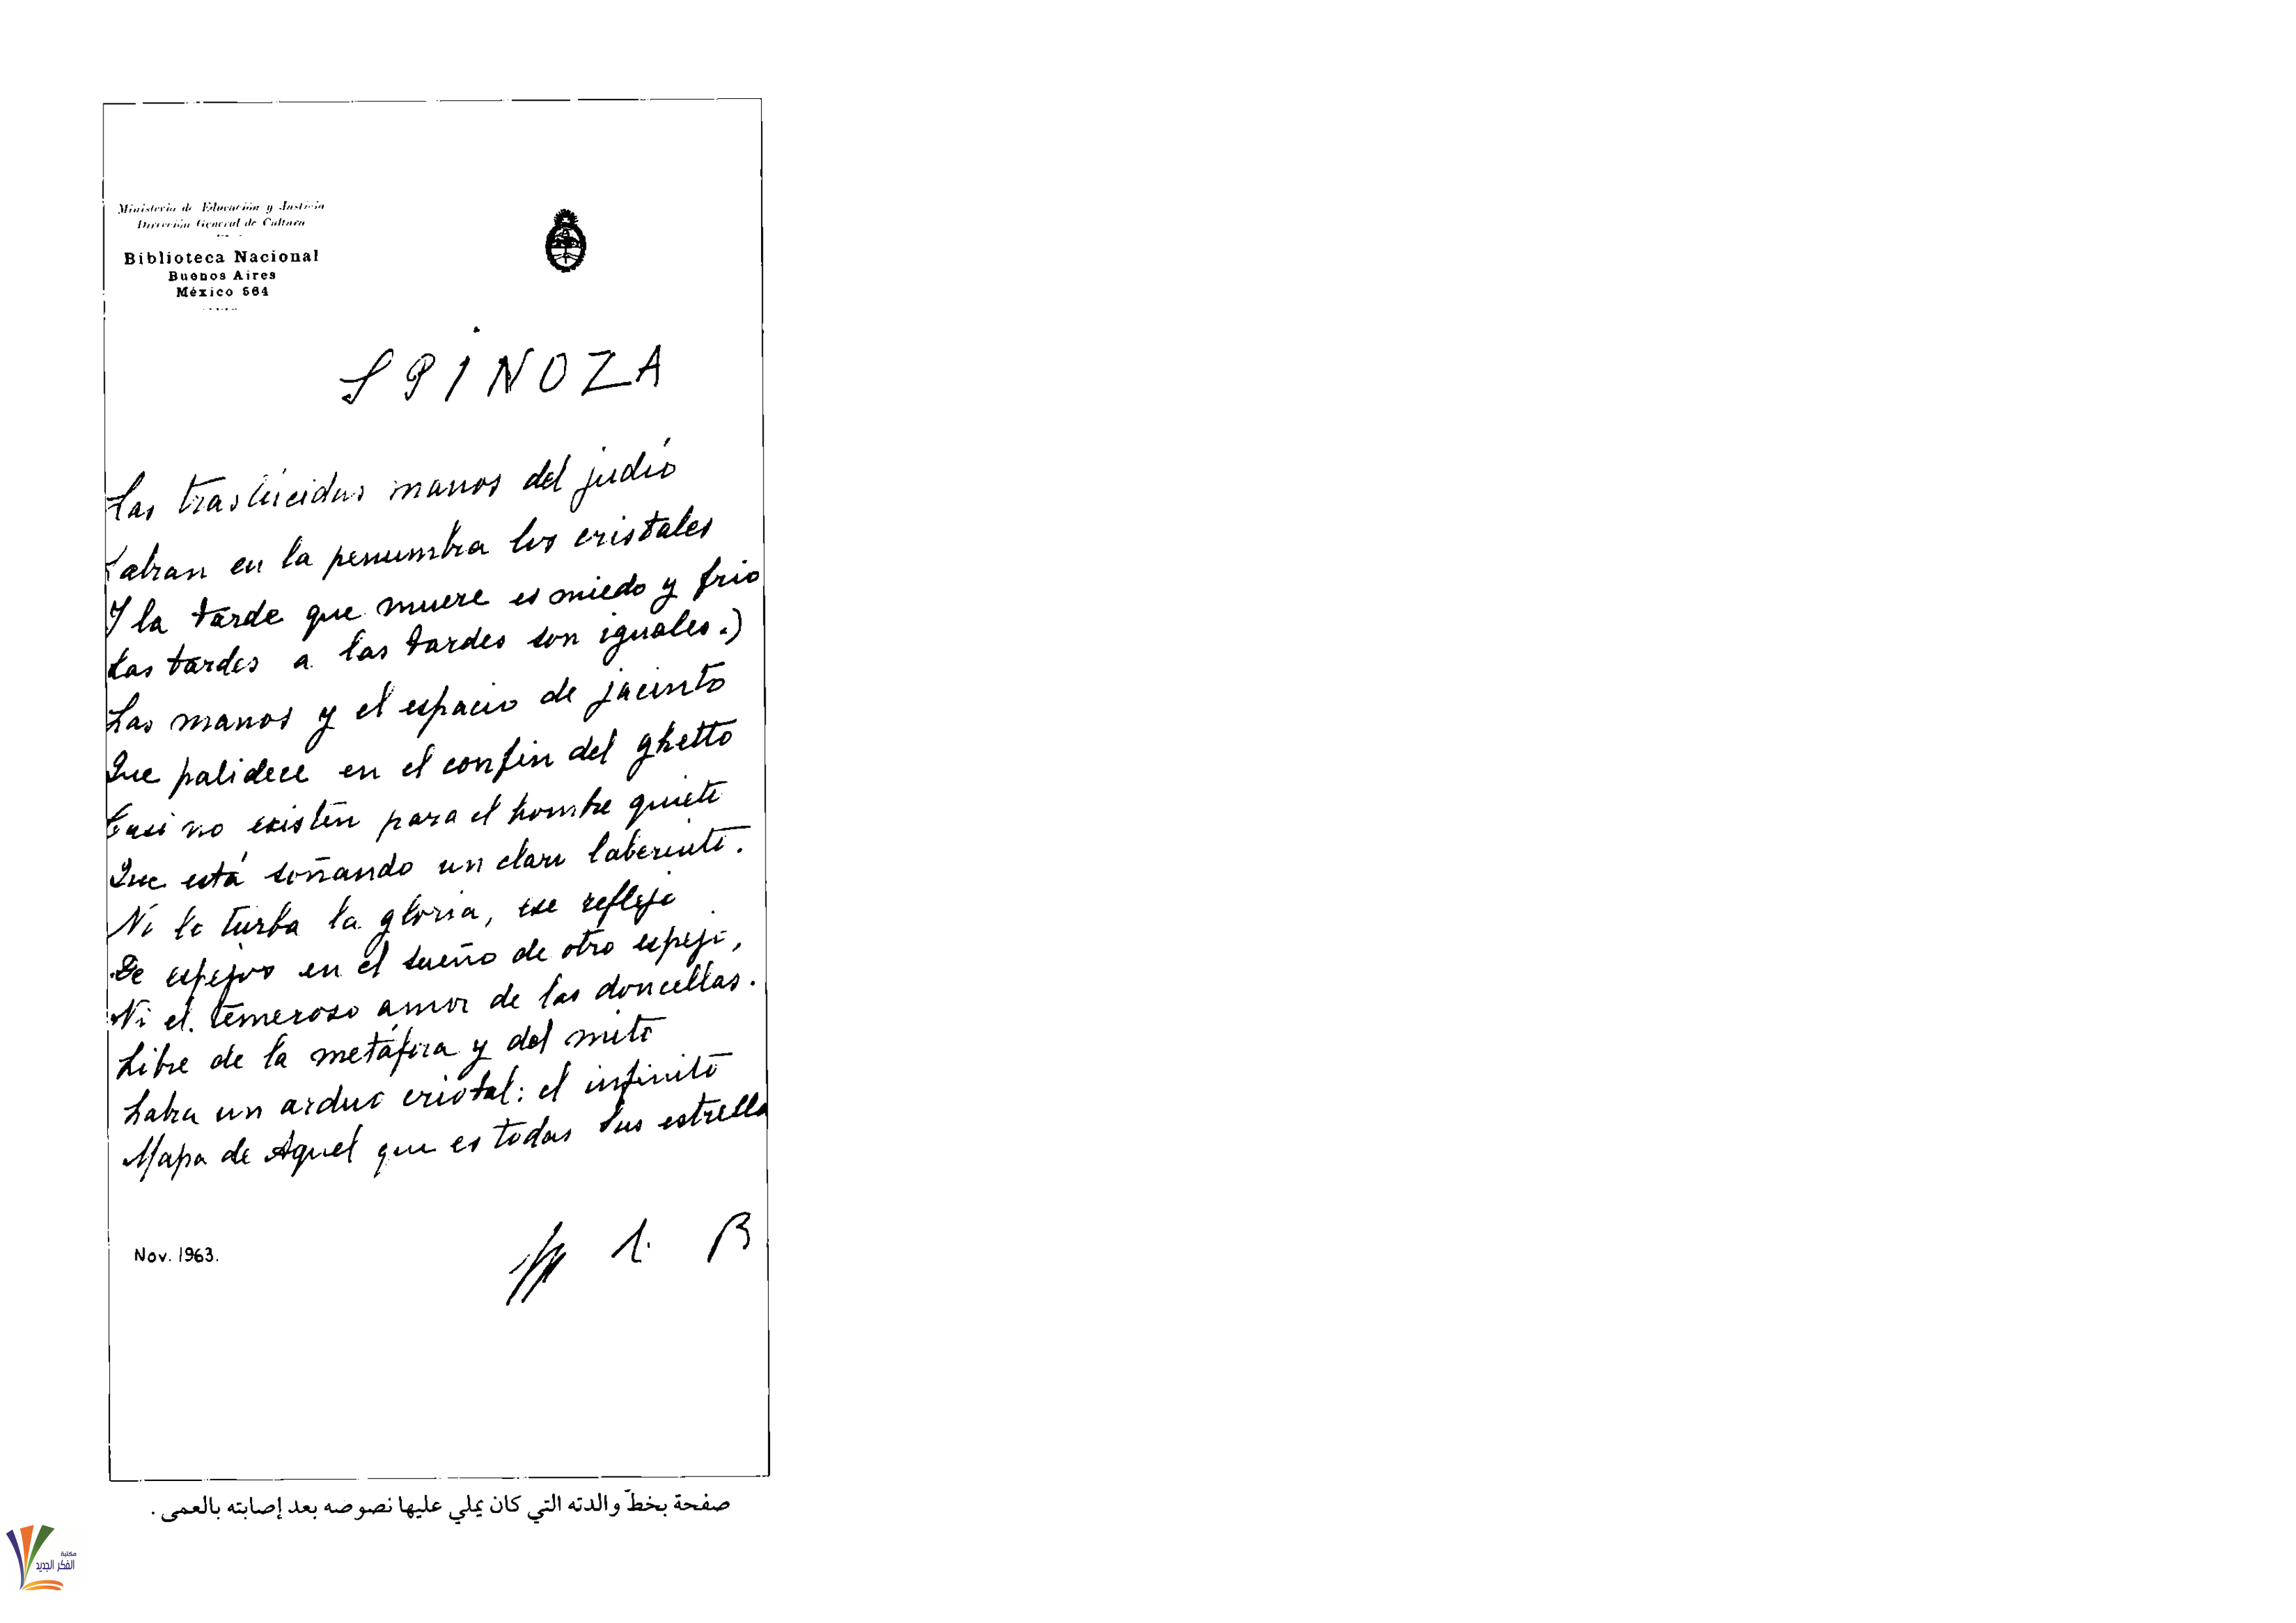 Ministerio de Educación y Justicia
Dirección General de Cultura
Biblioteca Nacional
Buenos Aires
México 564
SPINOZA
Las traslúcidas manos del judío
Labran en la penumbra los cristales
Y la tarde que muere es miedo y frio
Las tardes a las tardes son iguales.)
Las manos y el espacio de jacinto
Que palidece en el confin del ghetto
Casi no existen para el hombre quieto
Que está soñando un claro laberinto.
No lo turba la gloria, ese reflejo
De espejos en el sueño de otro espejo,
Ni el temeroso amor de las doncellas.
Libre de la metáfora y del mito
Labra un arduo cristal: el infinito
Mapa de Aquel que es todas sus estrella
Nov. 1963.
L. B
صفحة بخطّ والدته التي كان يملي عليها نصوصه بعد إصابته بالعمى .
مكتبة
الفكر الجديد